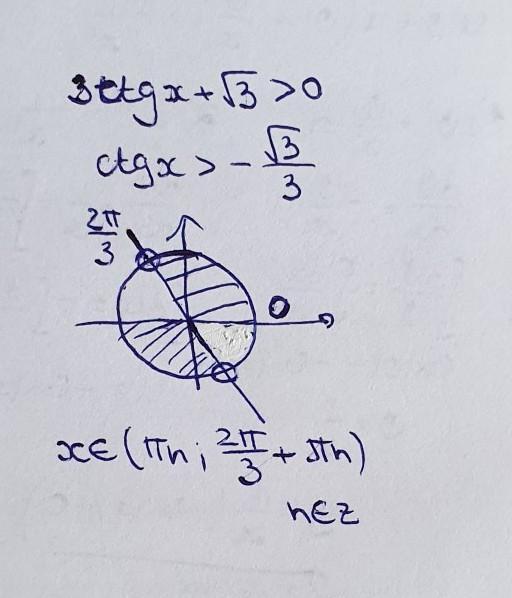 3ctgx+√3>0
ctgx>-√3/3
2π/3
0
x∈(πn; 2π/3+πn)
n∈z